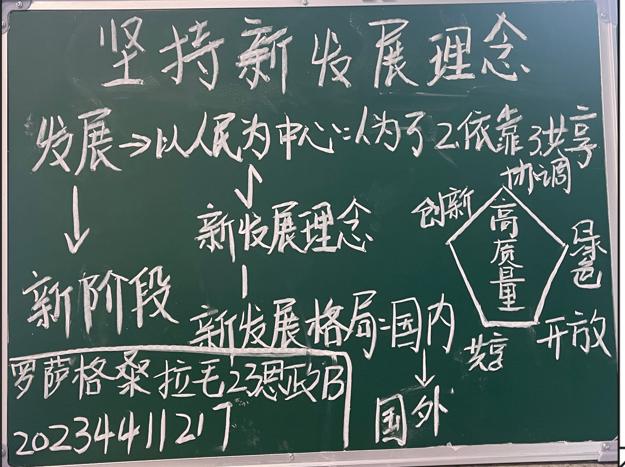 坚持新发展理念
发展→以人民为中心:1为了2.依靠3共享
新发展理念
协调
创新
高质量
绿色
共享
开放
新阶段
新发展格局:国内
国外
罗萨格桑拉毛23思政B
20234411217